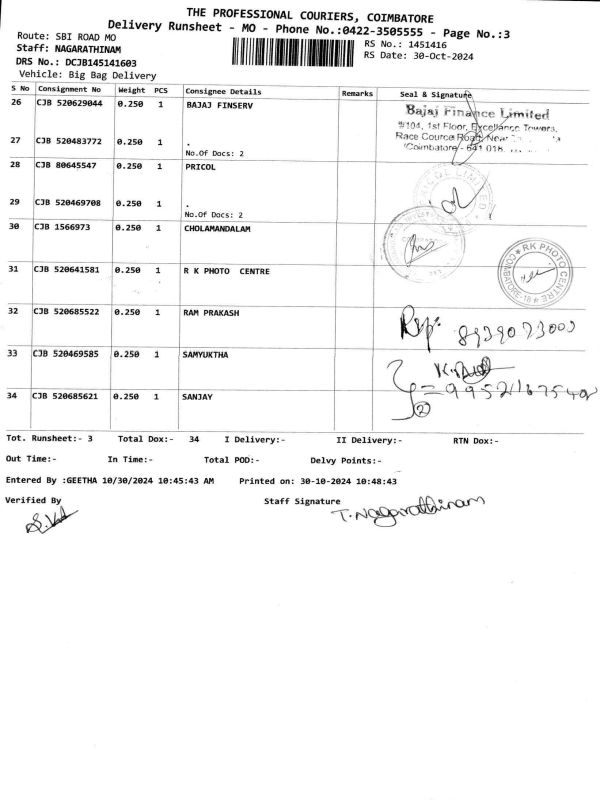 THE PROFESSIONAL COURIERS, COIMBATORE
Delivery Runsheet - MO - Phone No.:0422-3505555 - Page No.:3
Route: SBI ROAD MO
RS No.: 1451416
Staff: NAGARATHINAM
RS Date: 30-Oct-2024
DRS No.: DCJB145141603
Vehicle: Big Bag Delivery
S No Consignment No Weight PCS Consignee Details Remarks Seal & Signature
26 CJB 520629044 0.250 1 BAJAJ FINSERV
Bajaj Finance Limited
#104, 1st Floor, Excellance Towers,
Race Cource Road, Near
Coimbatore - 641 018.
27 CJB 520483772 0.250 1 .
No.Of Docs: 2
28 CJB 80645547 0.250 1 PRICOL
29 CJB 520469708 0.250 1 .
No.Of Docs: 2
30 CJB 1566973 0.250 1 CHOLAMANDALAM
31 CJB 520641581 0.250 1 R K PHOTO CENTRE
RK PHOTO CENTRE
COIMBATORE-18
32 CJB 520685522 0.250 1 RAM PRAKASH
33 CJB 520469585 0.250 1 SAMYUKTHA
34 CJB 520685621 0.250 1 SANJAY
2
Tot. Runsheet:- 3 Total Dox:- 34 I Delivery:- II Delivery:- RTN Dox:-
Out Time:- In Time:- Total POD:- Delvy Points:-
Entered By :GEETHA 10/30/2024 10:45:43 AM Printed on: 30-10-2024 10:48:43
Verified By Staff Signature
T. Nagarathinam